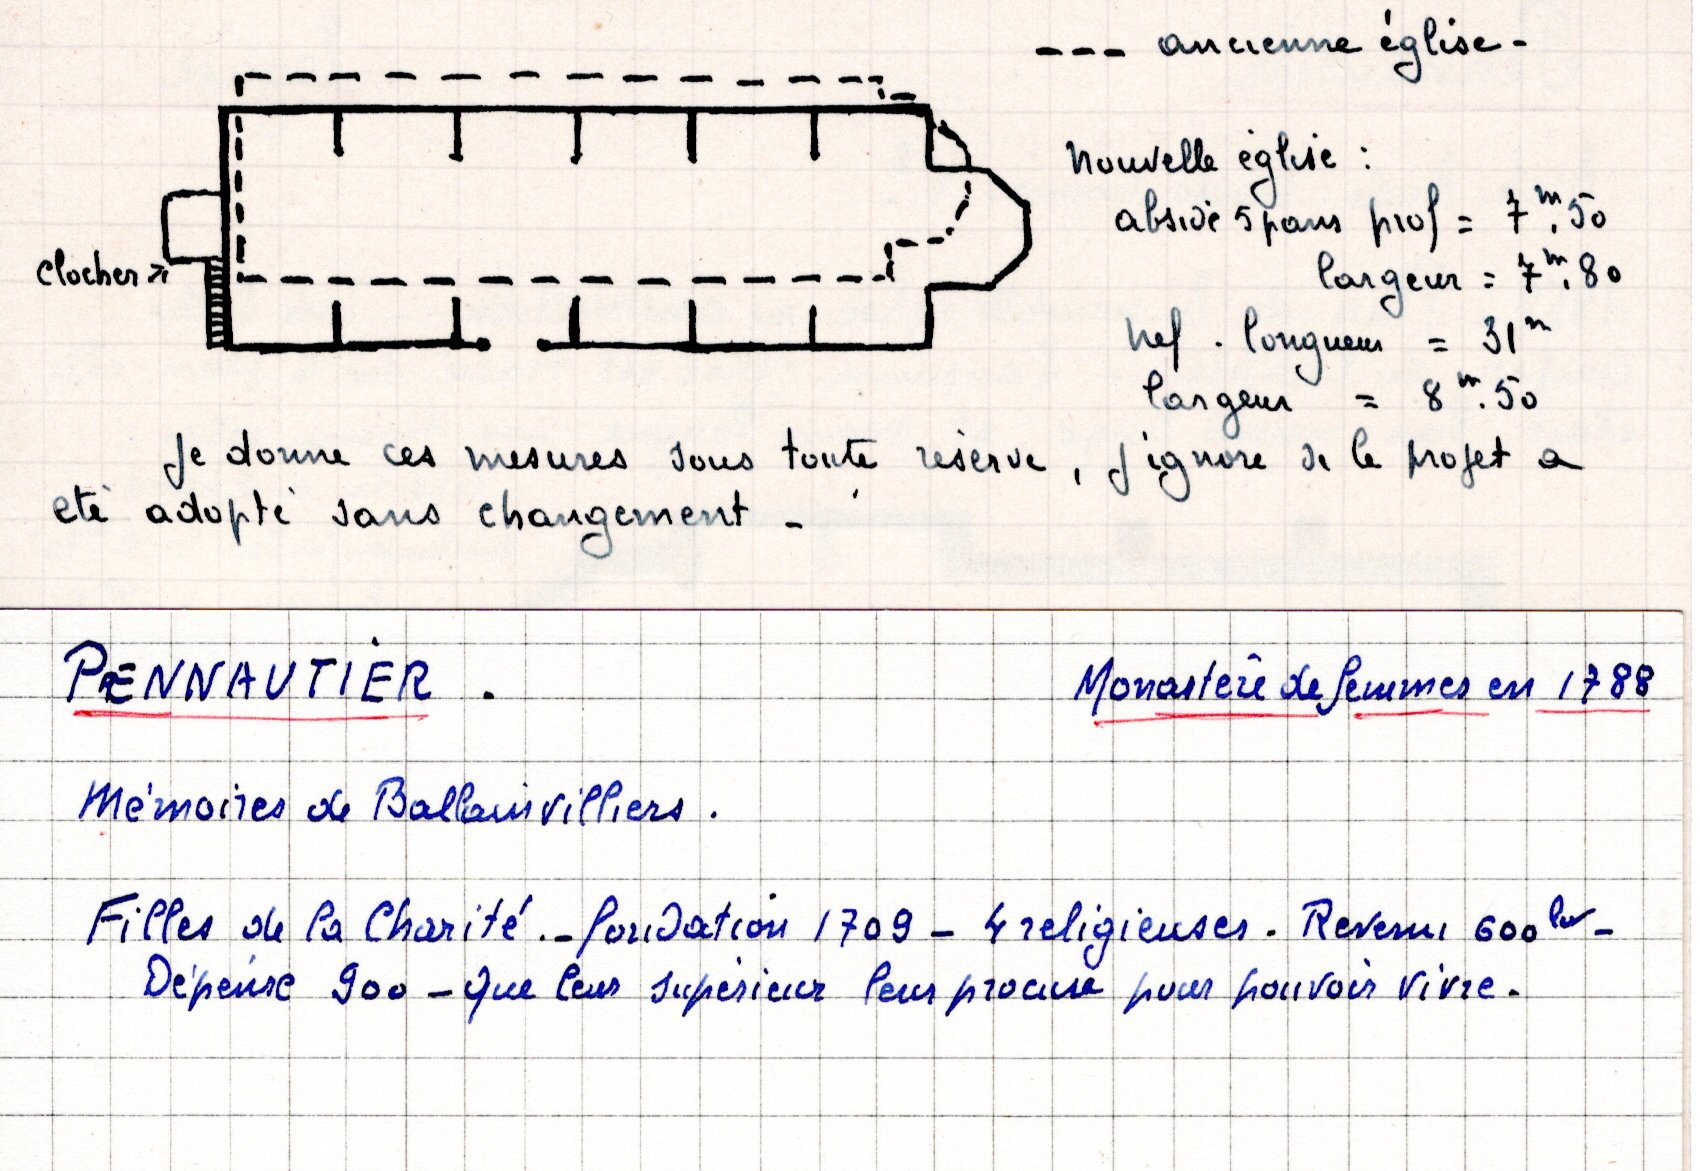 --- ancienne église -
Nouvelle église :
abside 5 pans prof = 7m.50
largeur = 7m.80
clocher
nef . longueur = 31m
largeur = 8m.50
Je donne ces mesures sous toute réserve, j'ignore si le projet a
été adopté sans changement -
PENNAUTIER .
Monastère de femmes en 1788
Mémoires de Ballainvilliers .
Filles de la Charité . - fondation 1709 - 4 religieuses . Revenu 600 -
Dépense 900 - que leur supérieur leur procure pour pouvoir vivre .